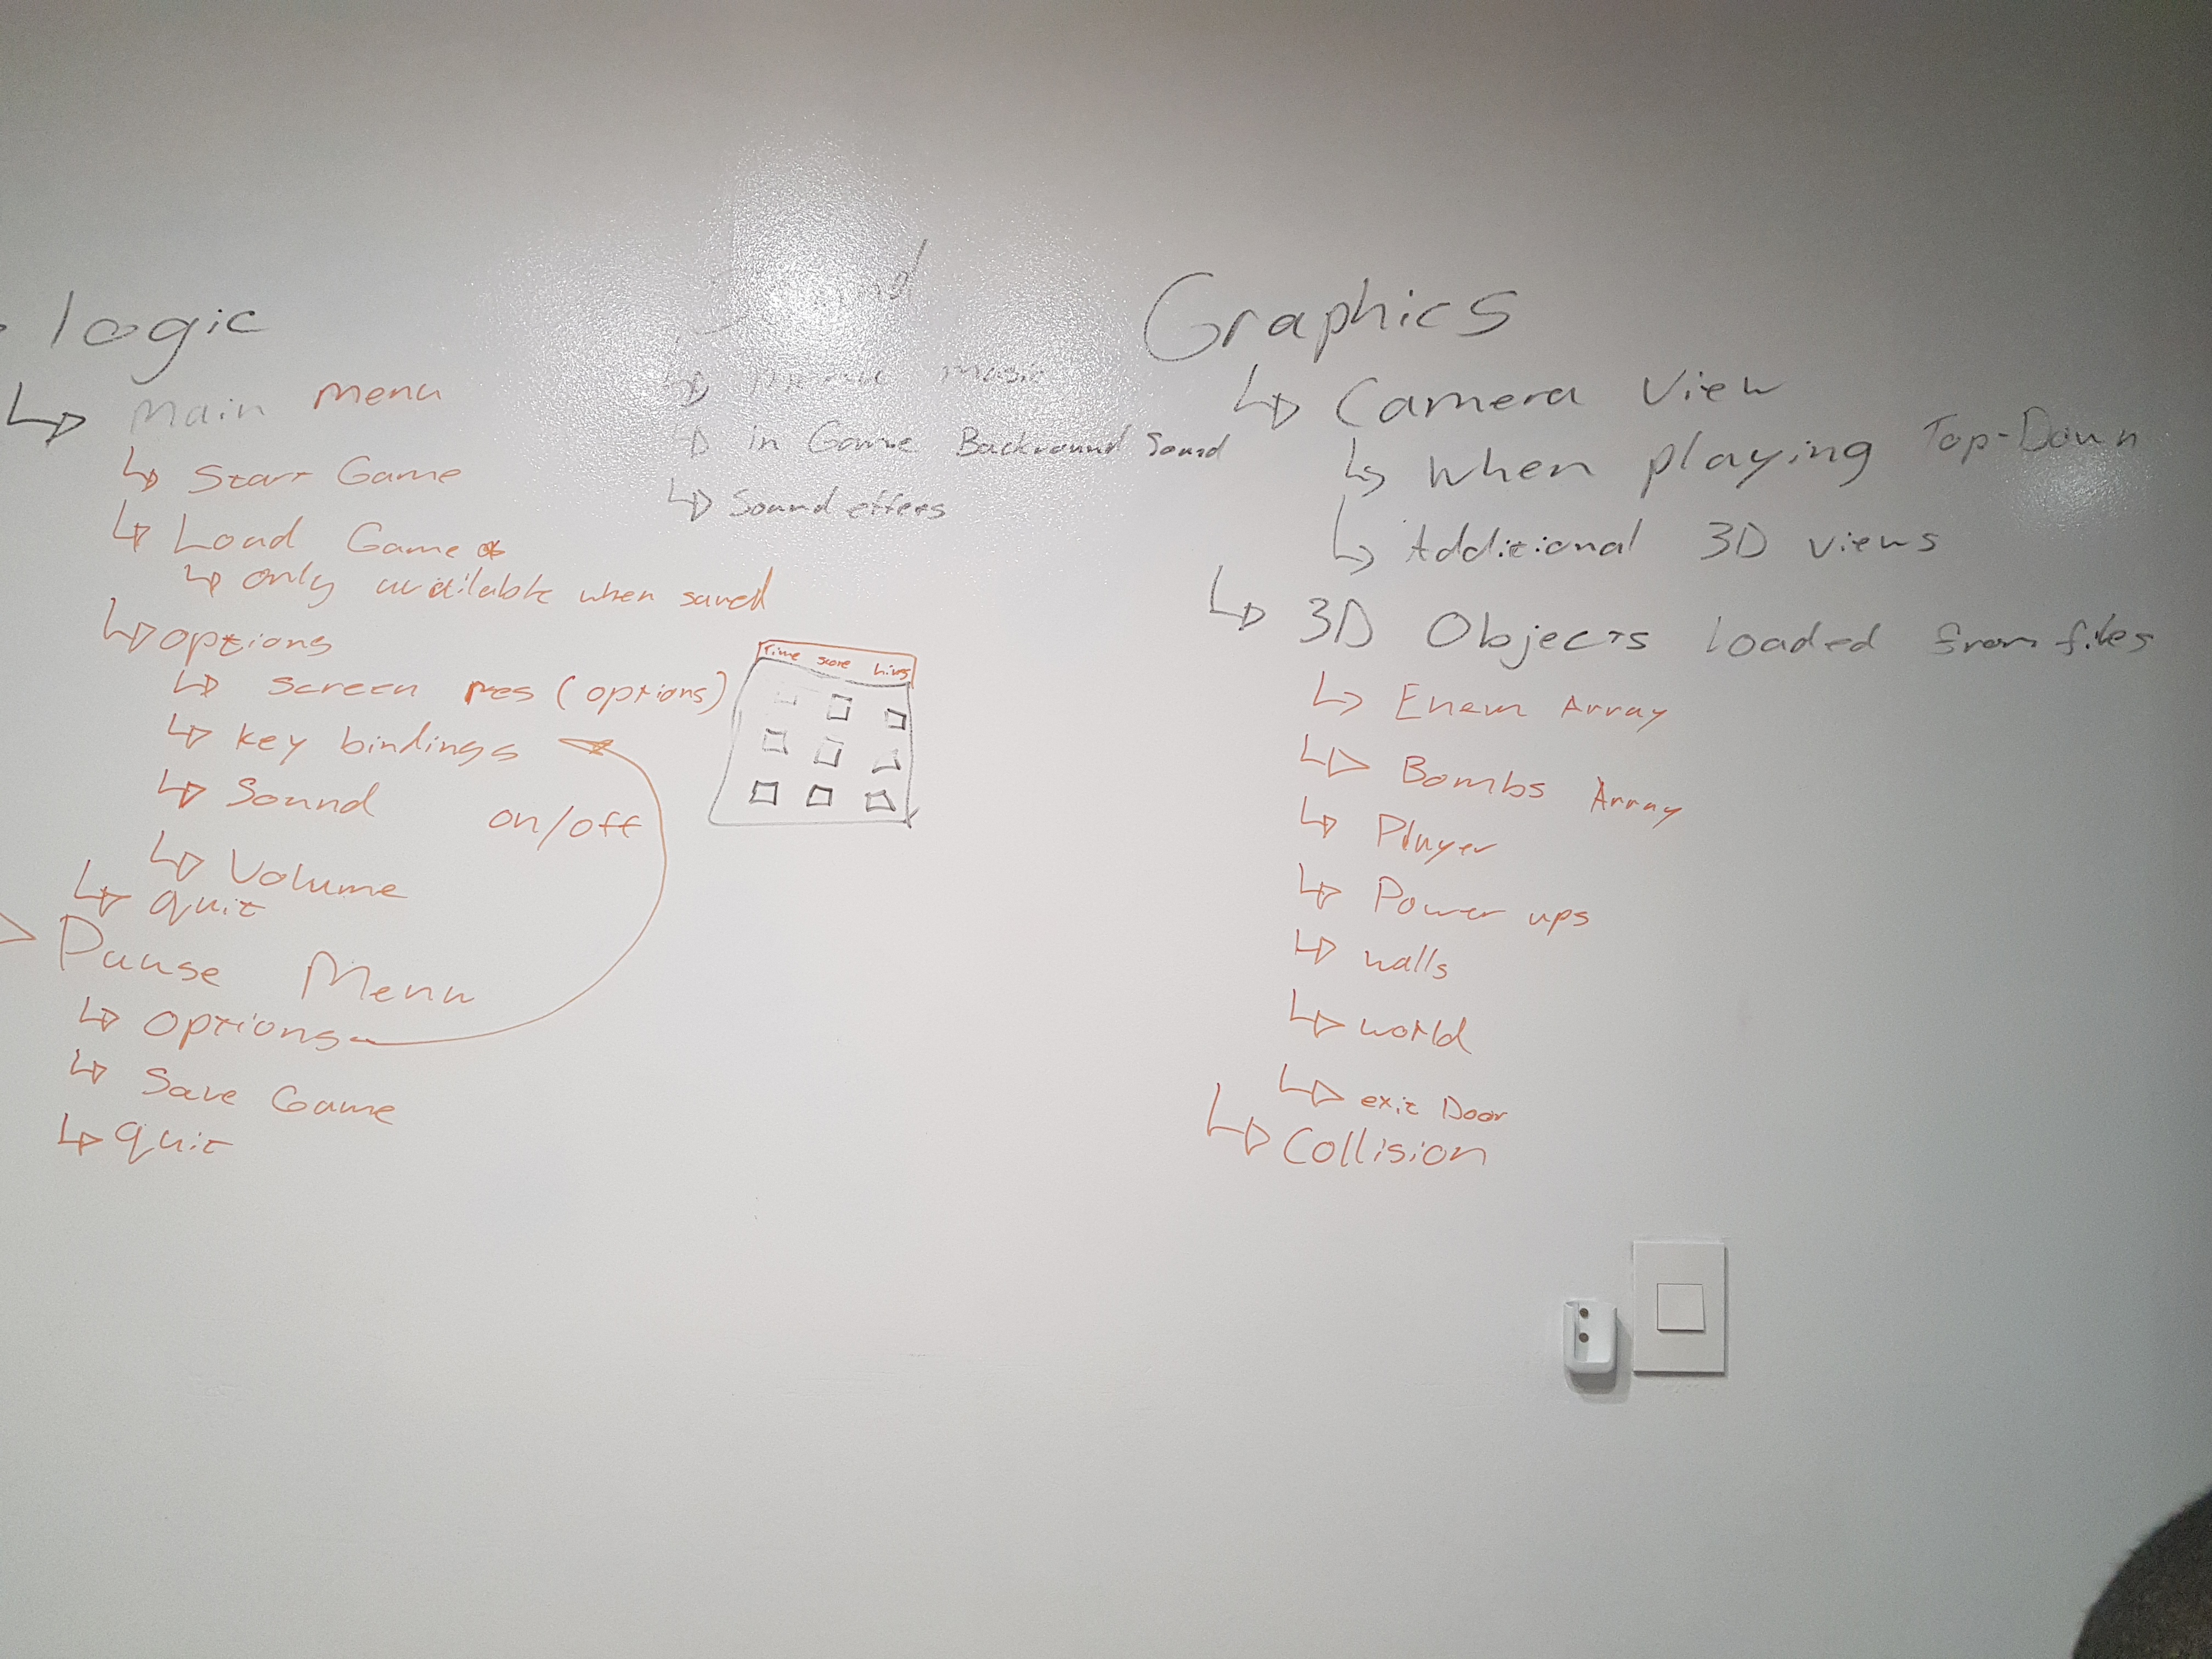 logic
Main Menu
Start Game
Load Game *
only available when saved
options
screen res (options)
key bindings
Sound on/off
Volume
quit
Pause Menu
options
Save Game
quit
Sound
Menu Music
in Game Backround Sound
Sound effees
Time score Lives
Graphics
Camera View
When playing Top-Down
Additional 3D views
3D Objects loaded from files
Enem Array
Bombs Array
Player
Power ups
walls
world
exit Door
Collision